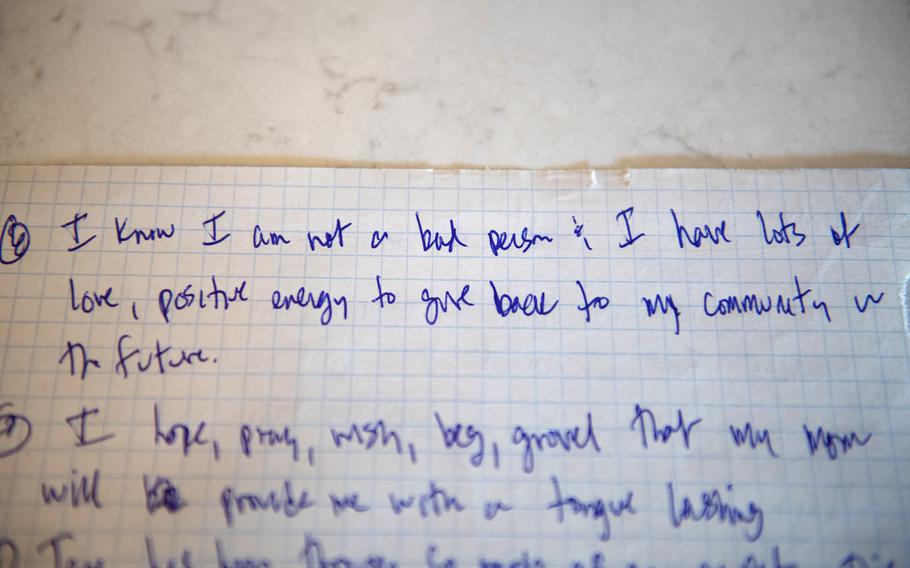 ⑧ I know I am not a bad person & I have lots of
love, positive energy to give back to my community in
the future.
I hope, pray, wish, beg, grovel that my mom
will provide me with a tongue lashing
has been through so much